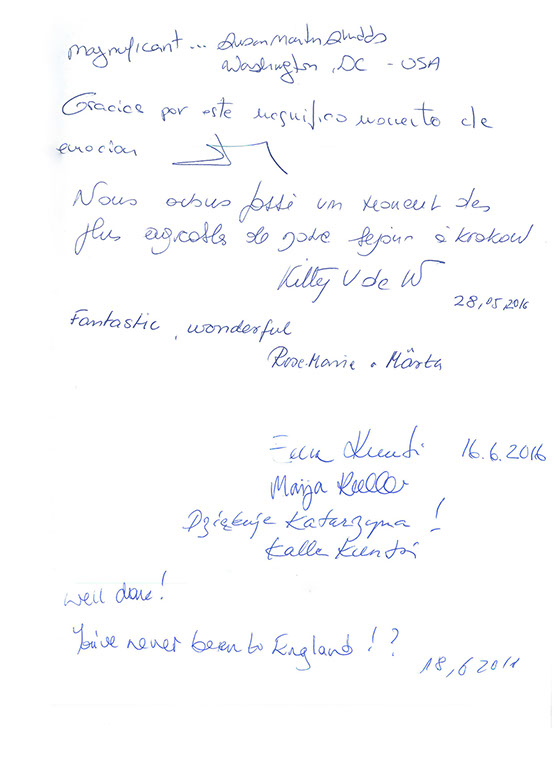 magnificant ... Susan Martin
Washington, DC - USA
Gracias por este magnifico momento de
emocion
Nous avons passé un moment des
plus agreable de notre sejour à Krakow
Kitty V de W
28,05,2016
Fantastic, wonderful
Rose-Marie • Märta
16.6.2016
Maija
Dziękuję Katarzyna!
Kalle
Well done!
You've never been to England!?
18,6 2011